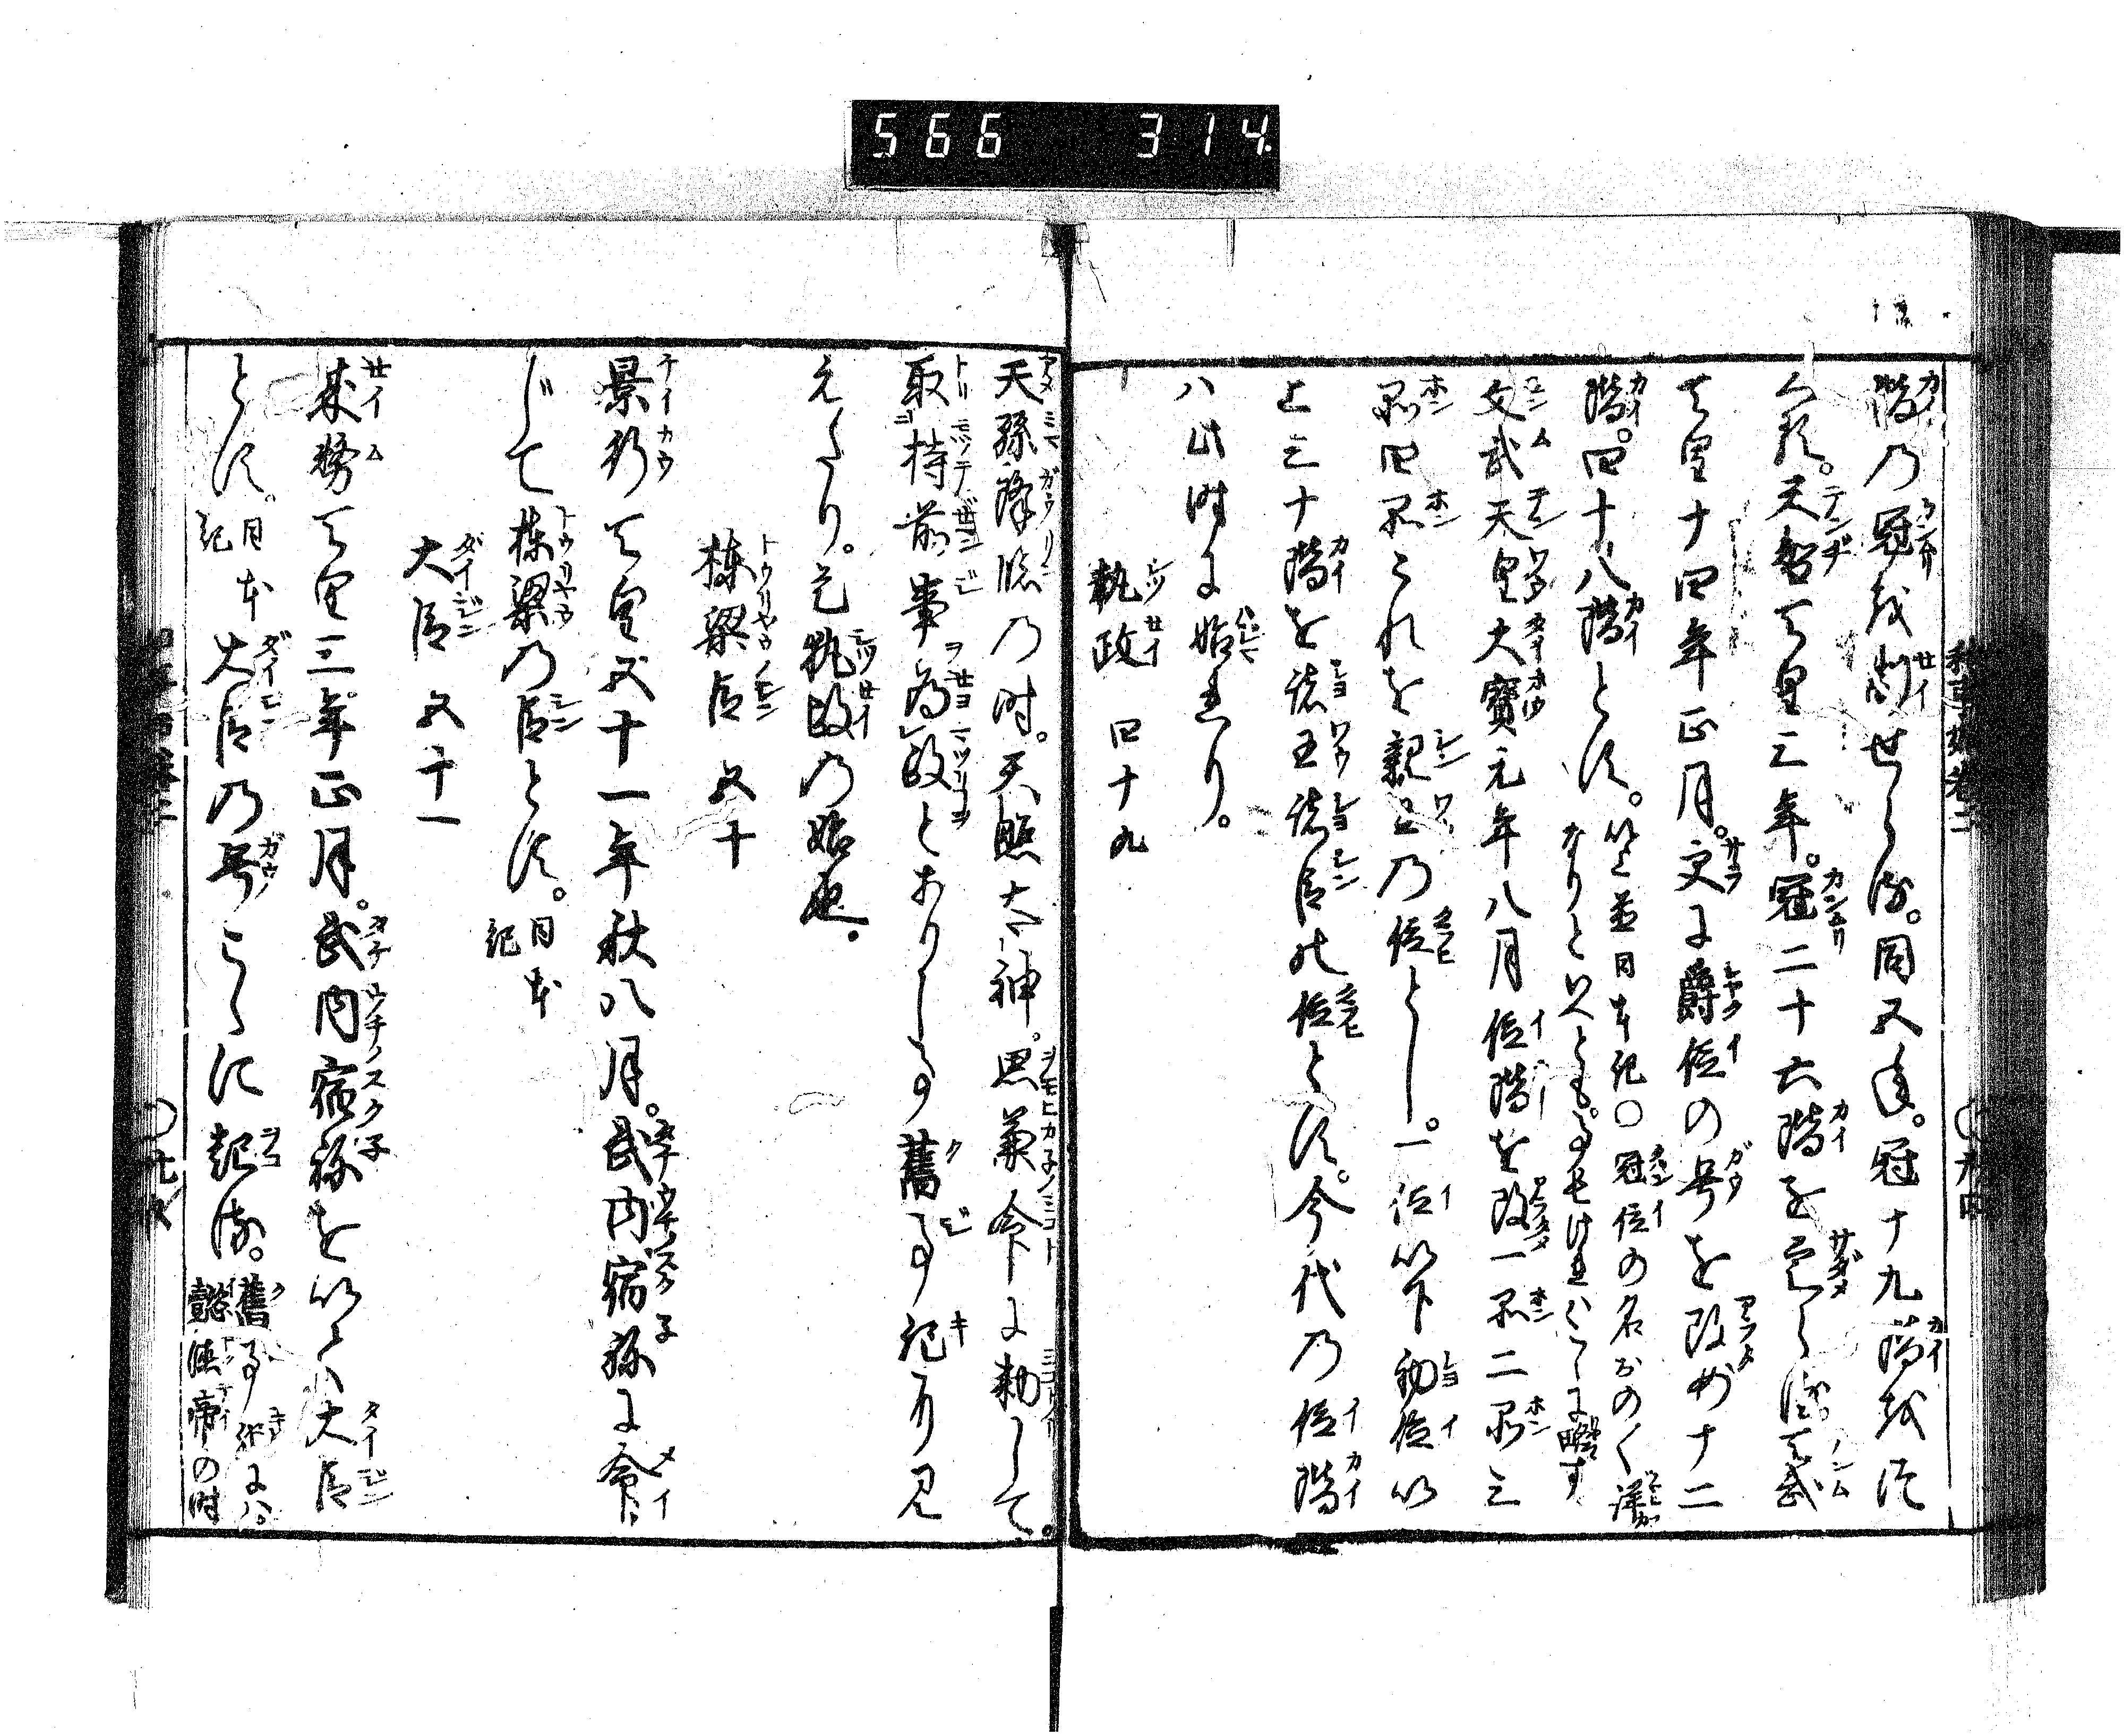 566 314
階乃冠を制せらる。同五年。冠十九階を定
天智天皇三年。冠二十六階を定らる。天武
天皇十四年正月。更に爵位の号を改め十二
階。四十八階とす。以上並日本紀〇冠位の名おのく詳か
なりといへとも。事長ければこゝに略す
文武天皇大寶元年八月位階を改一品二品三
品四品これを親王の位とし。一位以下初位以
上三十階を諸王諸臣の位とす。今代乃位階
ハ此時に始れり。
執政 四十九
天孫降臨乃時。天照太神。思兼命に勅して。
取持前事為政とありし事舊事記に見
えたり。是執政の始也。
棟梁臣 五十
景行天皇五十一年秋八月。武内宿祢に命
じて棟梁乃臣とす。日本紀
大臣 五十一
成務天皇三年正月。武内宿祢を以て大臣
とす。日本紀 大臣乃号こゝに起る。舊事紀にハ。
懿徳帝の時